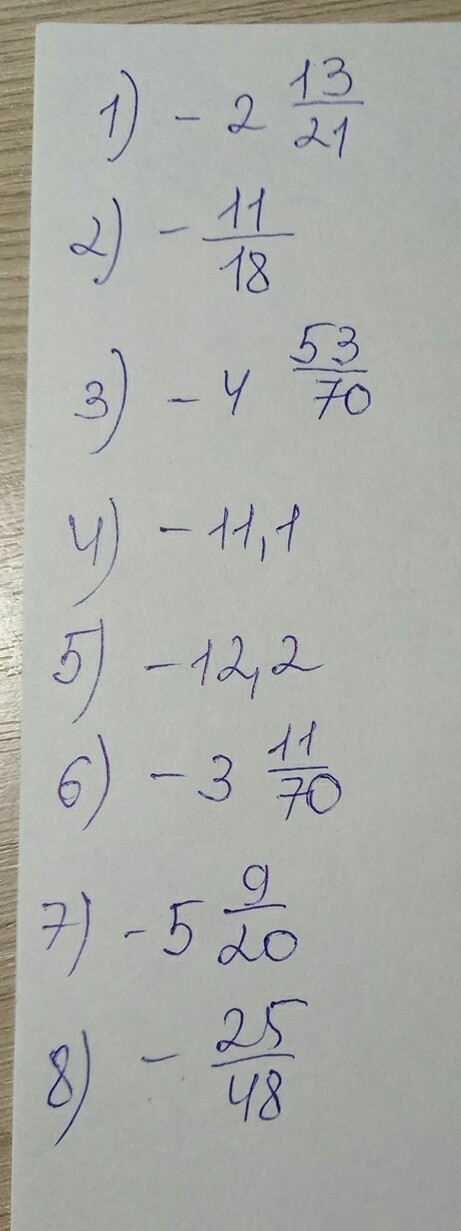 1) - 2 13/21
2) - 11/18
3) - 4 53/70
4) - 11,1
5) - 12,2
6) - 3 11/70
7) - 5 9/20
8) - 25/48